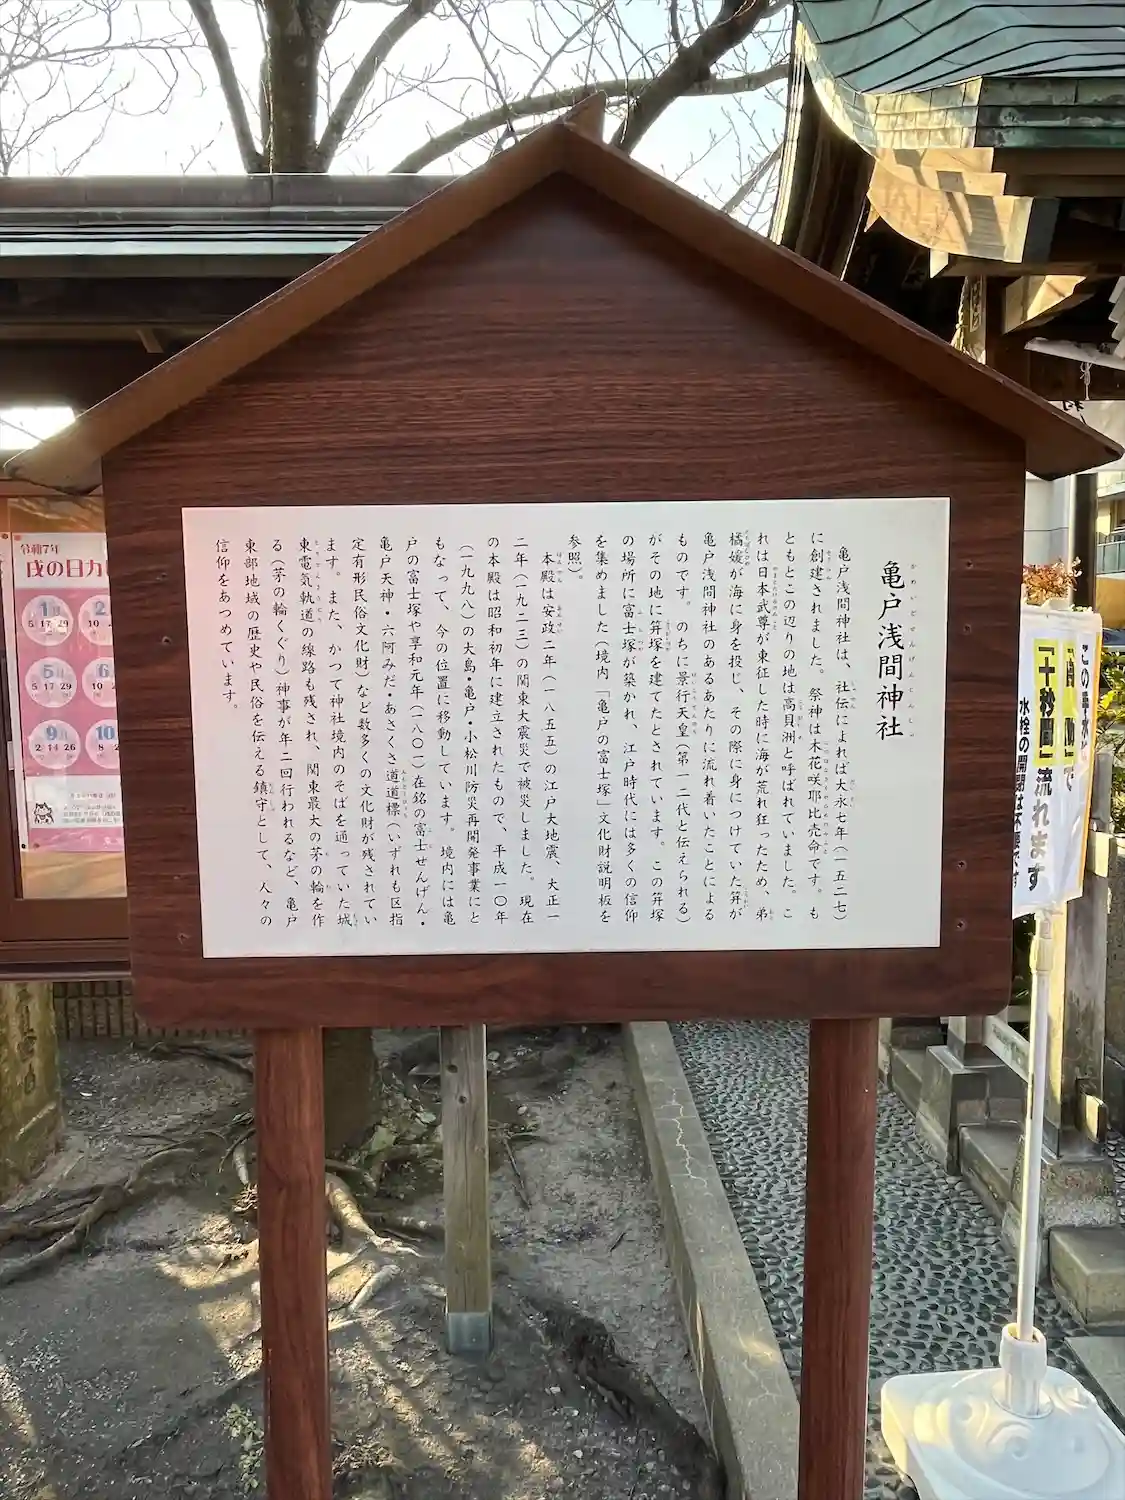 亀戸浅間神社
かめいどせんげんじんじゃ
亀戸浅間神社は、社伝によれば大永七年(一五二七)
に創建されました。祭神は木花咲耶比売命です。も
ともとこの辺りの地は高貝洲と呼ばれていました。こ
れは日本武尊が東征した時に海が荒れ狂ったため、弟
橘媛が海に身を投じ、その際に身につけていた笄が
亀戸浅間神社のあるあたりに流れ着いたことによる
ものです。のちに景行天皇(第一二代と伝えられる)
がその地に笄塚を建てたとされています。この笄塚
の場所に富士塚が築かれ、江戸時代には多くの信仰
を集めました(境内「亀戸の富士塚」文化財説明板を
参照)。
本殿は安政二年(一八五五)の江戸大地震、大正一
二年(一九二三)の関東大震災で被災しました。現在
の本殿は昭和初年に建立されたもので、平成一〇年
(一九九八)の大島・亀戸・小松川防災再開発事業にと
もなって、今の位置に移動しています。境内には亀
戸の富士塚や享和元年(一八〇一)在銘の富士せんげん・
亀戸天神・六阿みだ・あさくさ道道標(いずれも区指
定有形民俗文化財)など数多くの文化財が残されてい
ます。また、かつて神社境内のそばを通っていた城
東電気軌道の線路も残され、関東最大の茅の輪を作
る(茅の輪くぐり)神事が年二回行われるなど、亀戸
東部地域の歴史や民俗を伝える鎮守として、人々の
信仰をあつめています。
令和7年
戌の日カ
1月
5 17 29
2
10
5月
5 17 29
6
10
9月
2 14 26
10
8
「十秒間」流れます
水栓の開閉は不要です